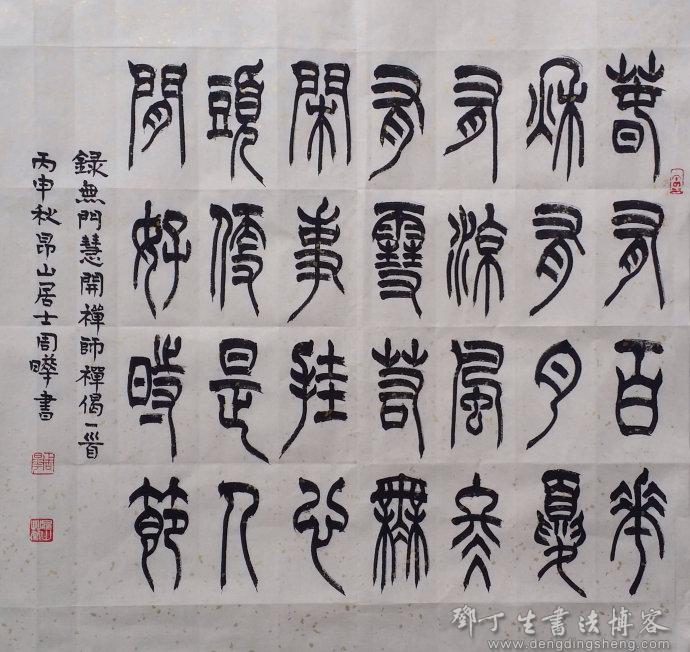 春有百花
秋有月夏
有涼風冬
有雪若無
閑事挂心
頭便是人
間好時節
錄無門慧開禪師禪偈一首
丙申秋昂山居士周曄書
鄧丁生書法博客
www.dengdingsheng.com